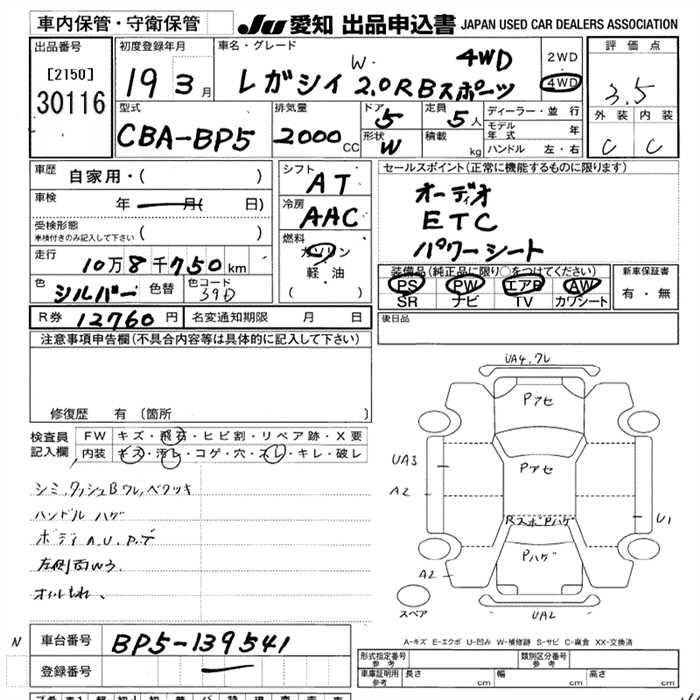 車内保管・守衛保管
JU 愛知 出品申込書 JAPAN USED CAR DEALERS ASSOCIATION
出品番号
[2150]
30116
初度登録年月
19 3月
車名・グレード
4WD
W.
レガシイ 2.0R Bスポーツ
2WD
4WD
評価点
3.5
外装 内装
C C
型式
CBA-BP5
排気量
2000cc
ドア
5
形状
W
定員
5人
積載
kg
ディーラー・並行
モデル年式 年
ハンドル 左・右
車歴
自家用・( )
車検
年 月( 日)
受検形態
車検付きのみ記入して下さい ( )
走行
10万8千750km
色
シルバー
色替
色コード
39D
シフト
AT
冷房
AAC
燃料
ガソリン
・
軽・油
( )
セールスポイント(正常に機能するものに限ります)
オーディオ
ETC
パワーシート
装備品(純正品に限り○をつけてください)
PS PW エアB AW
SR ナビ TV カワシート
新車保証書
有・無
R券 12760円
名変通知期限 月 日
後日品
注意事項申告欄(不具合内容等は具体的に記入して下さい)
修復歴 有(箇所 )
検査員記入欄
FW キズ・飛石・ヒビ割・リペア跡・X要
内装 キズ・汚レ・コゲ・穴・スレ・キレ・破レ
シミ,ダッシュBワレ,ベタツキ
ハンドル ハゲ
ボディ A.U.P.デ
左側面Wう.
オイルもれ、
UA4.ワレ
Pアセ
Pアセ
RスポPハゲ
Pハゲ
UA3
A2
A2
U1
UA2
スペア
A-キズ E-エクボ U-凹み W-補修跡 S-サビ C-腐食 XX-交換済
N
車台番号 BP5-139541
登録番号
形式指定番号
参考
類別区分番号
参考
車庫証明用
参考
長さ cm 幅 cm 高さ cm